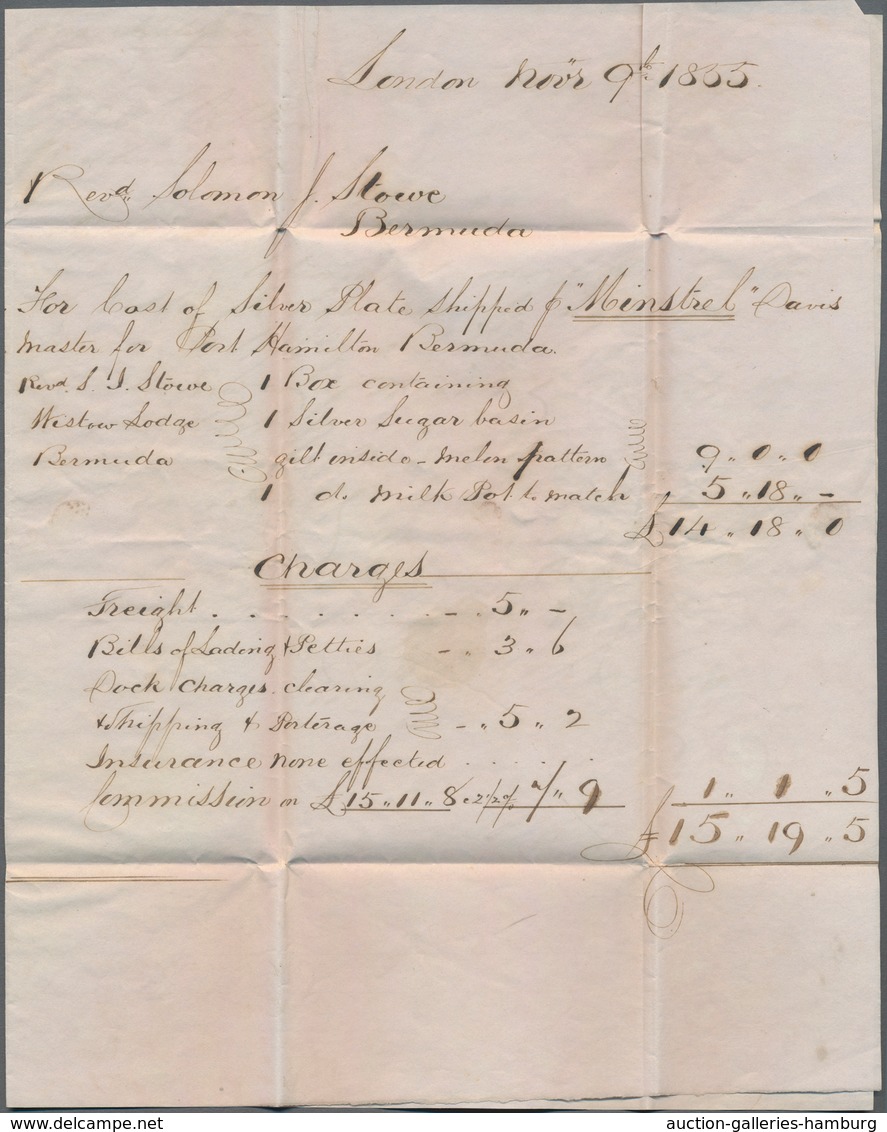 London Novr 9th 1855.
Revd. Solomon J. Stowe
Bermuda
For Cost of Silver Plate shipped p "Minstrel" Davis
master for Port Hamilton Bermuda.
Revd. S. J. Stowe 1 Box containing
Westow Lodge 1 Silver Sugar basin
Bermuda gilt inside - Melon pattern 9 " 0 " 0
1 do Milk Pot to match 5 " 18 " -
£14 " 18 " 0
Charges
Freight . . . . . . . - . 5 " -
Bills of Lading & Petties - " 3 " 6
Dock charges. clearing
& Shipping & Porterage - " 5 " 2
Insurance none effected . . . . .
Commission on £15 " 11 " 8 @ 2 1/2 % 7 " 9 1 " 1 " 5
£15 " 19 " 5
auction-galleries-hamburg